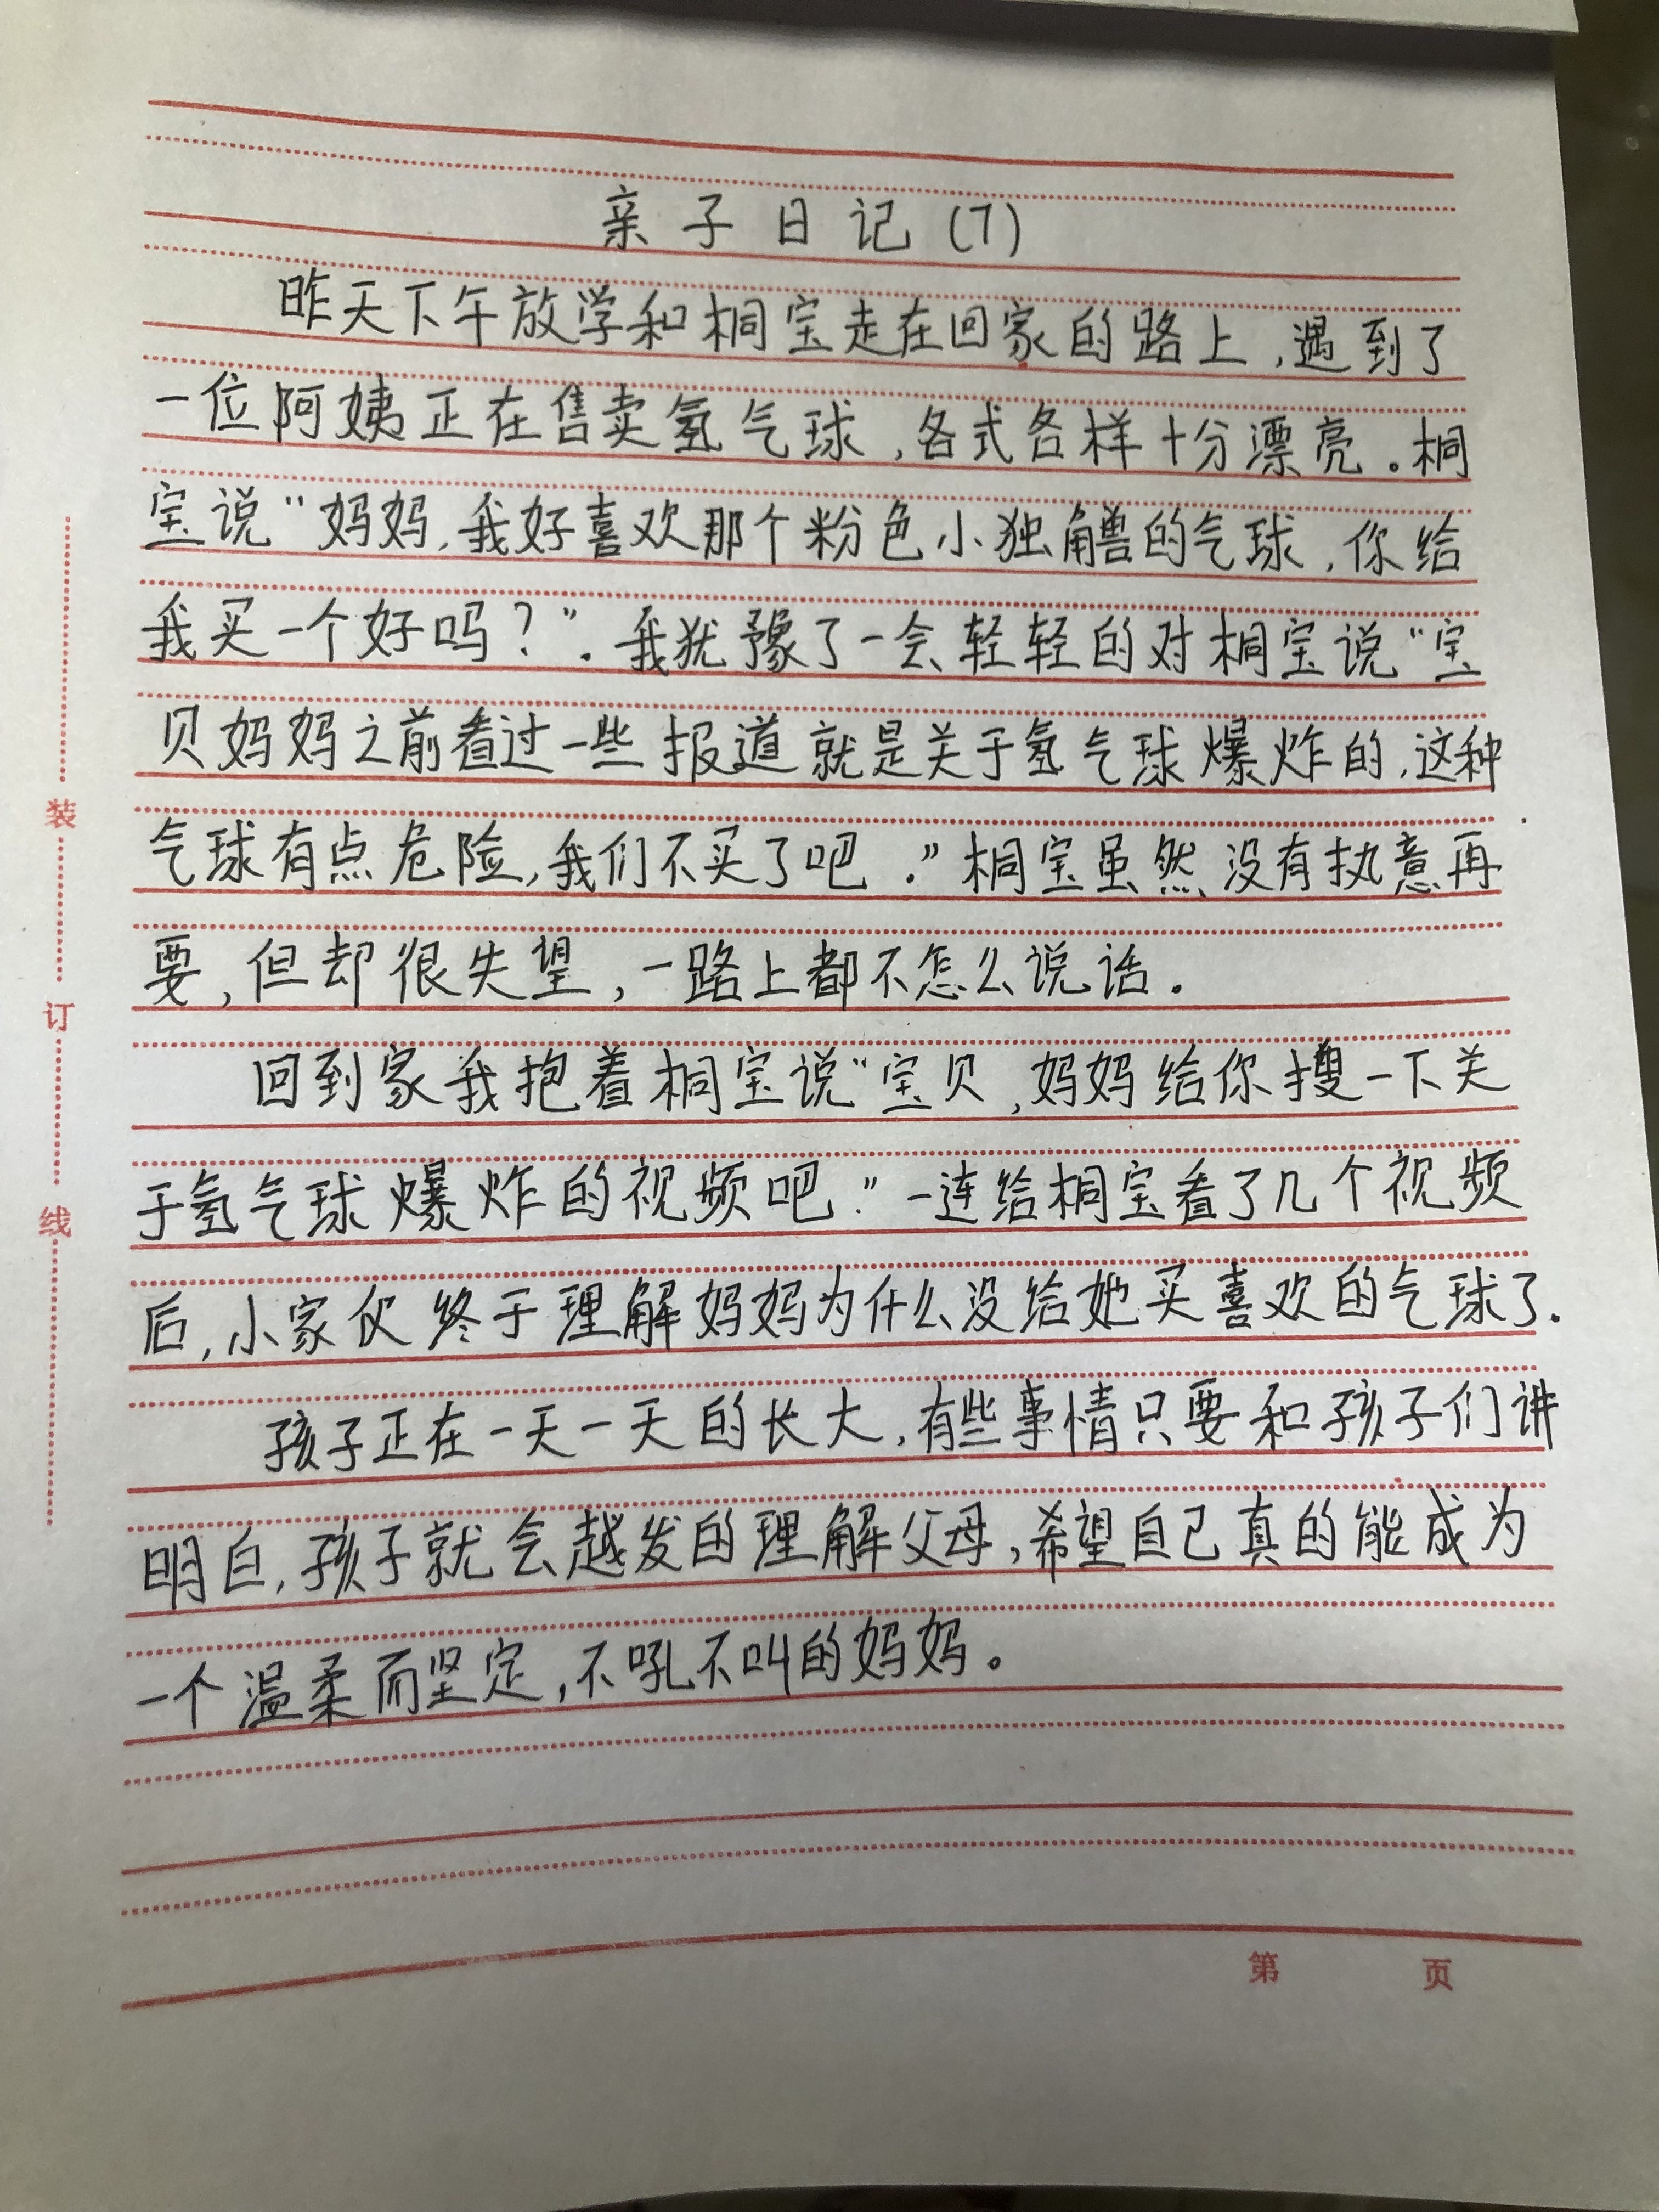 亲子日记(7)
昨天下午放学和桐宝走在回家的路上,遇到了
一位阿姨正在售卖氢气球,各式各样十分漂亮。桐
宝说“妈妈,我好喜欢那个粉色小独角兽的气球,你给
我买一个好吗?”.我犹豫了一会轻轻的对桐宝说“宝
贝妈妈之前看过一些报道就是关于氢气球爆炸的,这种
气球有点危险,我们不买了吧。”桐宝虽然没有执意再
要,但却很失望,一路上都不怎么说话.
回到家我抱着桐宝说“宝贝,妈妈给你搜一下关
于氢气球爆炸的视频吧.”一连给桐宝看了几个视频
后,小家伙终于理解妈妈为什么没给她买喜欢的气球了.
孩子正在一天一天的长大,有些事情只要和孩子们讲
明白,孩子就会越发的理解父母,希望自己真的能成为
一个温柔而坚定,不吼不叫的妈妈。
装
订
线
第 页